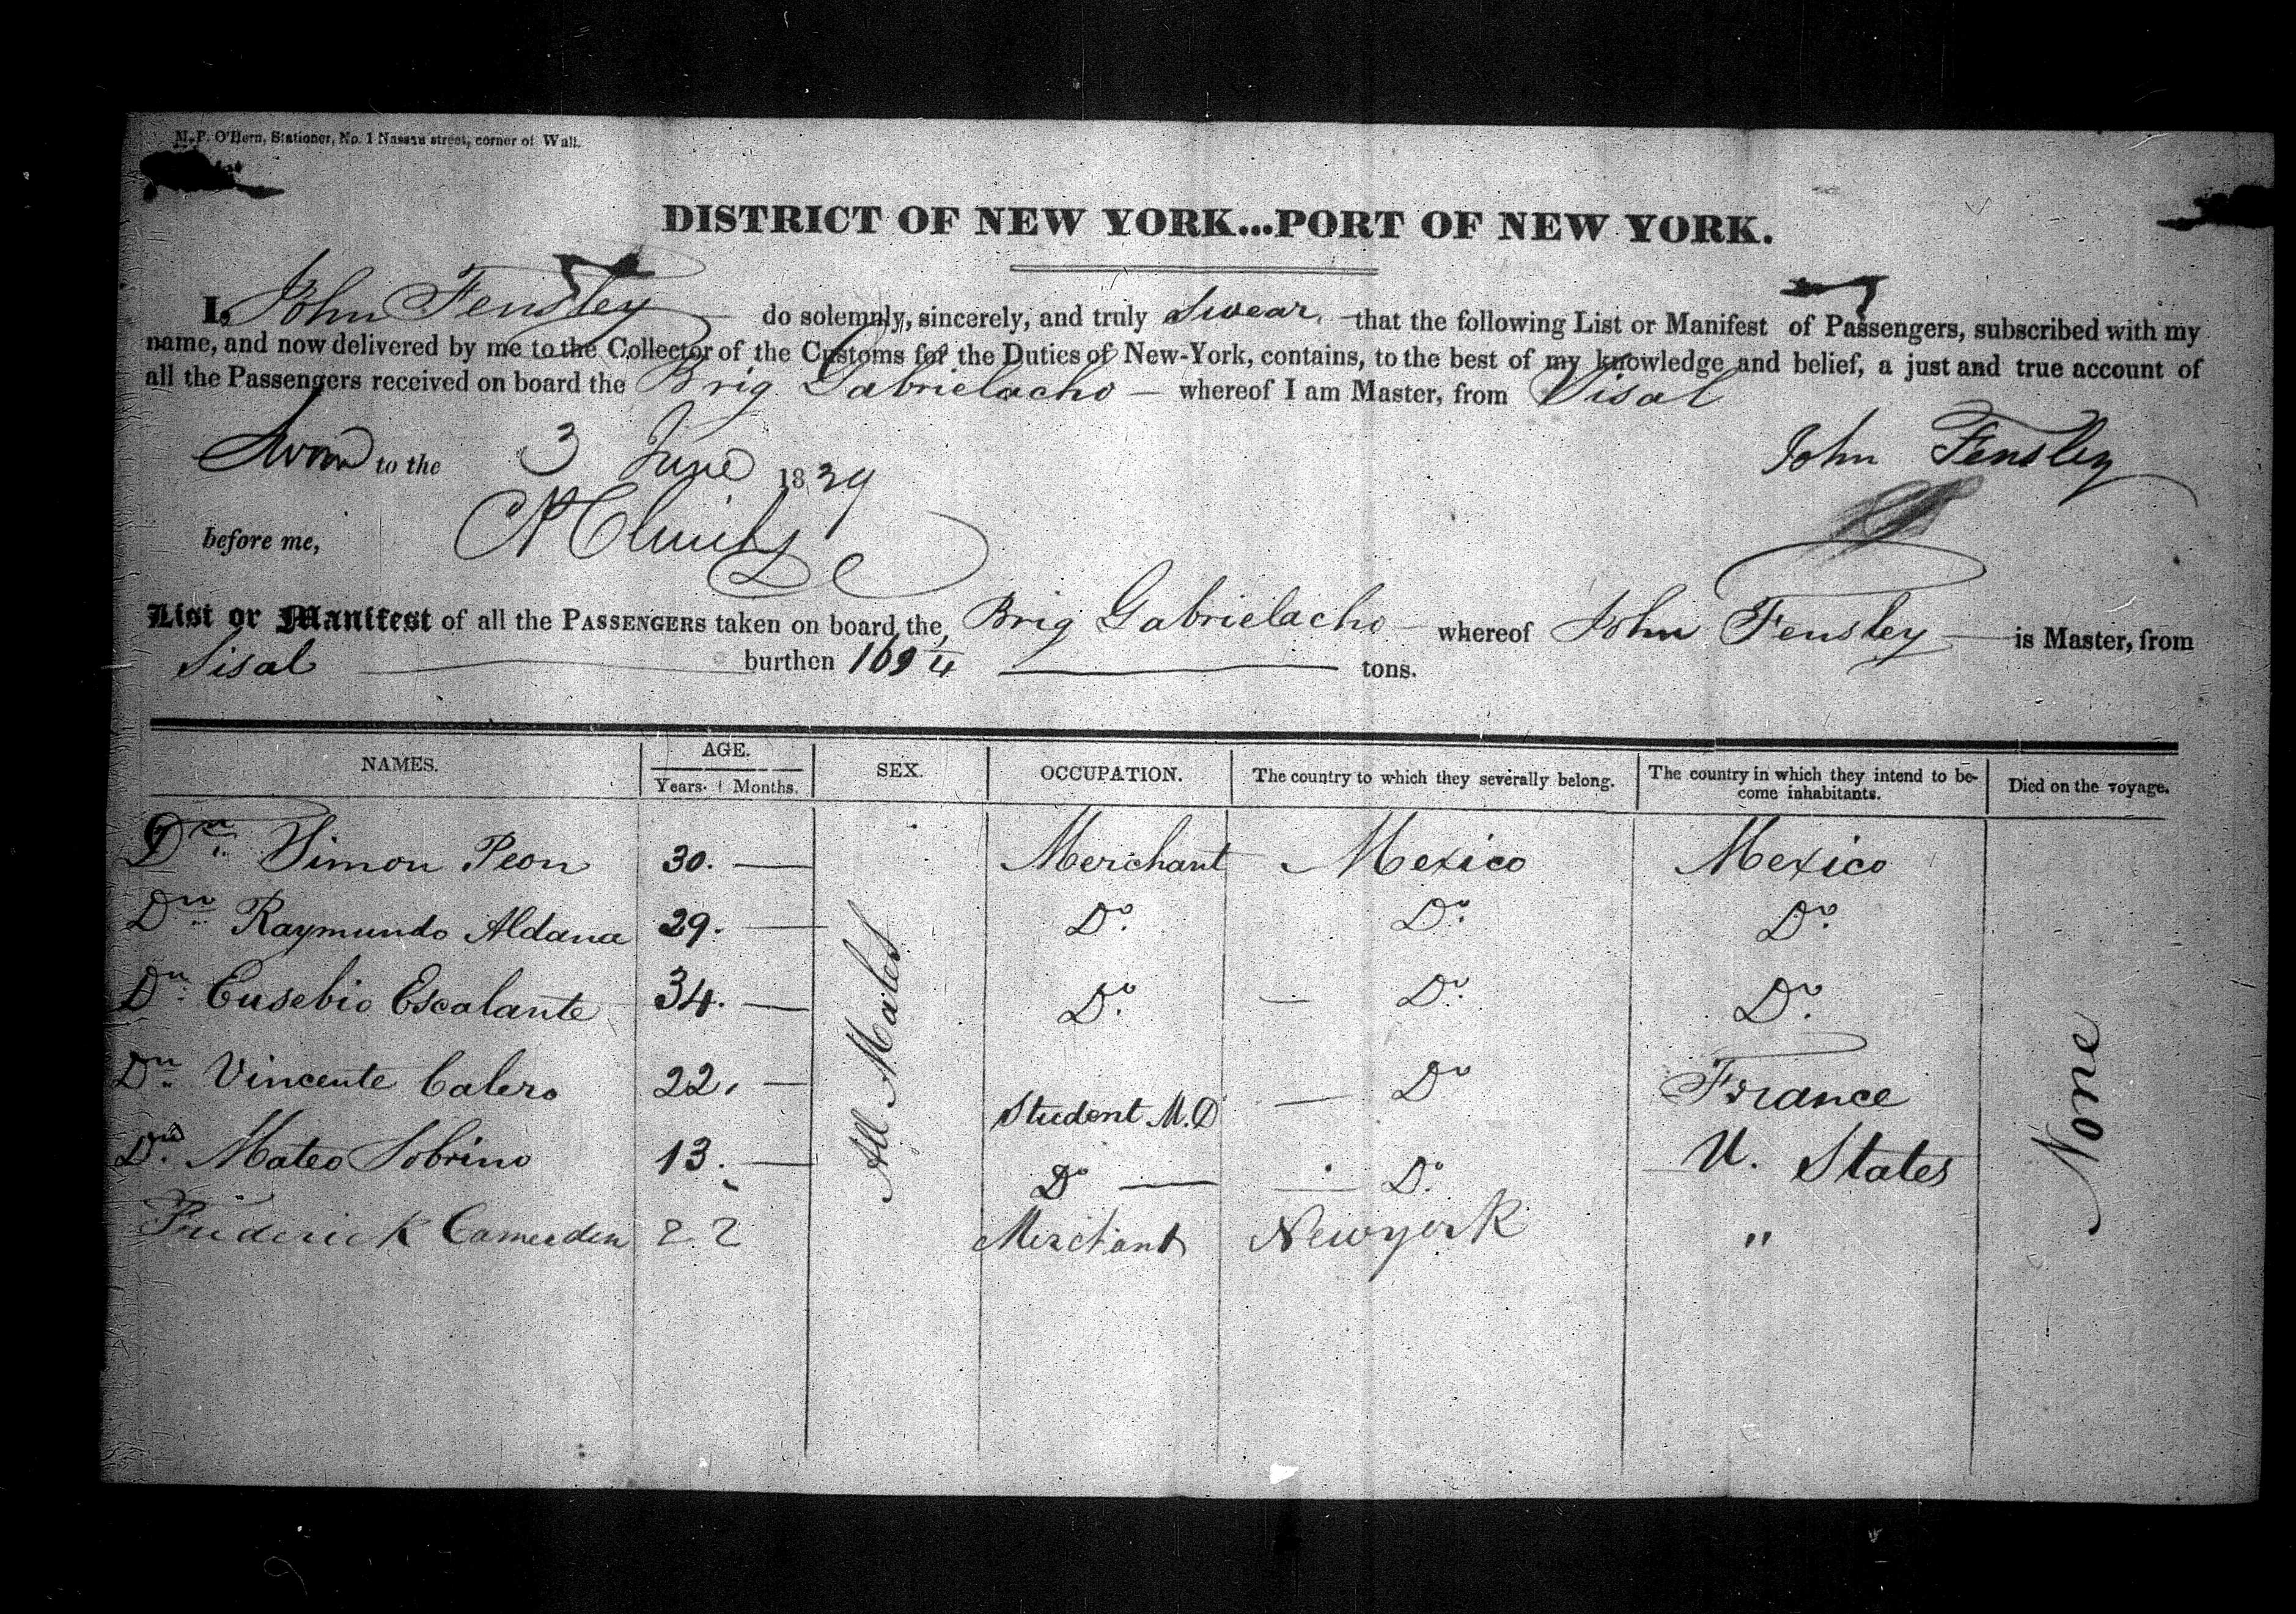 M. P. O'Hern, Stationer, No. 1 Nassau street, corner of Wall.
DISTRICT OF NEW YORK...PORT OF NEW YORK.
I, John Fensley do solemnly, sincerely, and truly Swear that the following List or Manifest of Passengers, subscribed with my
name, and now delivered by me to the Collector of the Customs for the Duties of New-York, contains, to the best of my knowledge and belief, a just and true account of
all the Passengers received on board the Brig Gabrielacho — whereof I am Master, from Sisal
Sworn to the 3 June 1839 John Fensley
before me,
List or Manifest of all the PASSENGERS taken on board the Brig Gabrielacho whereof John Fensley is Master, from
Sisal burthen tons.
NAMES. AGE. Years. Months. SEX. OCCUPATION. The country to which they severally belong. The country in which they intend to become inhabitants. Died on the voyage.
Dn. Simon Peon 30. — Merchant Mexico Mexico
Dn. Raymundo Aldana 29. — Do. Do. Do.
Dn. Eusebio Escalante 34. — Do. — Do. Do.
Dn. Vincente Calero 22. — Student M.D — Do France
Dn. Mateo Sobrino 13. — Do — — Do. U. States
Frederick Camerden 22 Merchant Newyork "
All Males
None